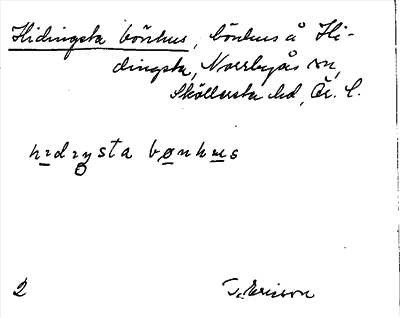 Hidingsta bönhus, bönhus å Hi-
dingsta, Norrbyås sn,
Sköllersta hd, Ör. l.
hidiŋsta bønhus
2
T. Ericson